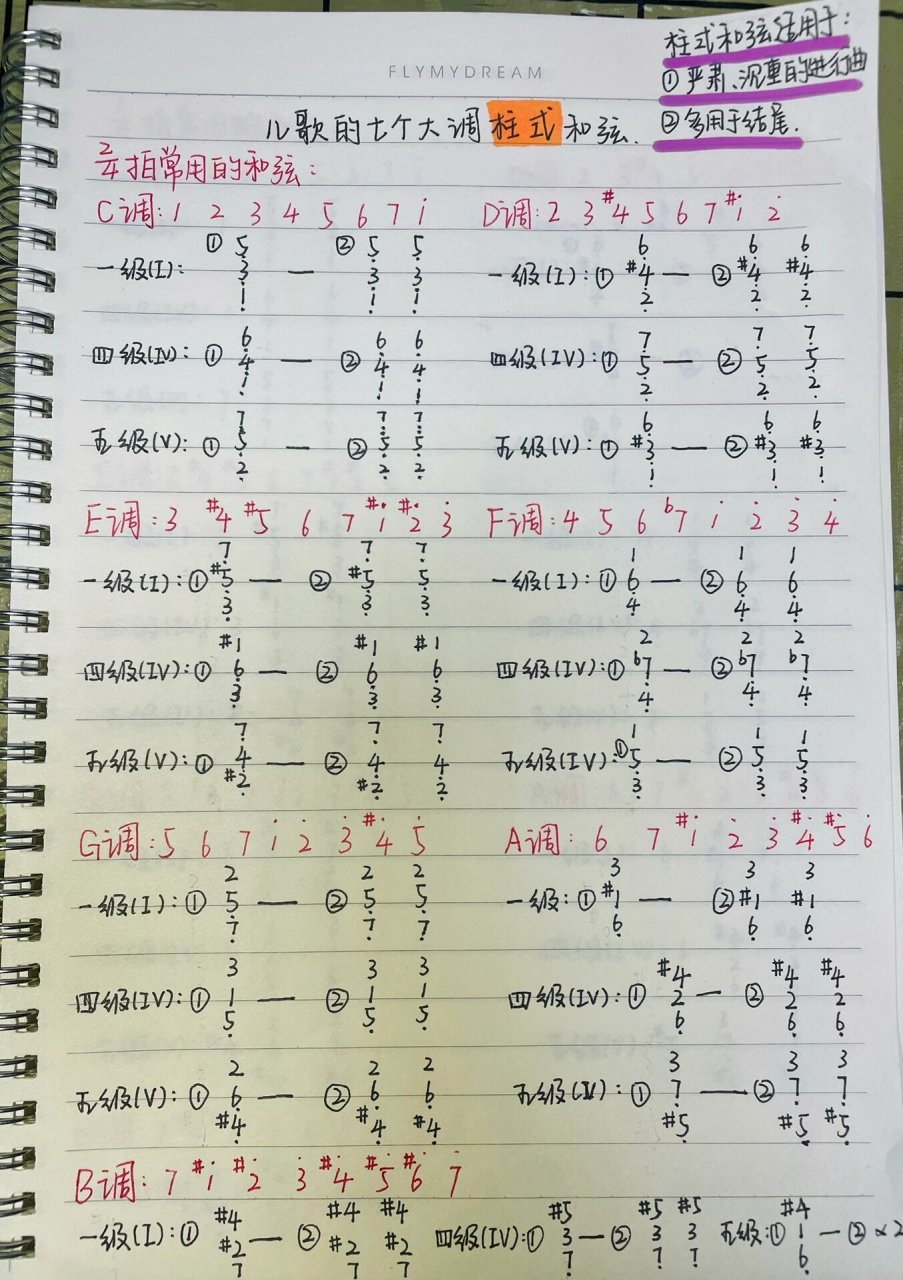 柱式和弦适用于:
FLYMYDREAM
①严肃、沉重的进行曲
儿歌的七个大调柱式和弦.
②多用于结尾.
2/4拍常用的和弦:
C调: 1 2 3 4 5 6 7 i
D调: 2 3 #4 5 6 7 #i 2̇
一级(I): ① 5̣ 3̣ 1̣ — ② 5̣ 3̣ 1̣ 5̣ 3̣ 1̣
一级(I): ① 6̣ #4̣ 2̣ — ② 6̣ #4̣ 2̣ 6̣ #4̣ 2̣
四级(IV): ① 6̣ 4̣ 1̣ — ② 6̣ 4̣ 1̣ 6̣ 4̣ 1̣
四级(IV): ① 7̣ 5̣ 2̣ — ② 7̣ 5̣ 2̣ 7̣ 5̣ 2̣
五级(V): ① 7̣ 5̣ 2̣ — ② 7̣ 5̣ 2̣ 7̣ 5̣ 2̣
五级(V): ① 6̣ #3̣ 1̣ — ② 6̣ #3̣ 1̣ 6̣ #3̣ 1̣
E调: 3 #4 #5 6 7 #i #2̇ 3̇
F调: 4 5 6 b7 i 2̇ 3̇ 4̇
一级(I): ① 7̣ #5̣ 3̣ — ② 7̣ #5̣ 3̣ 7̣ 5̣ 3̣
一级(I): ① 1 6̣ 4̣ — ② 1 6̣ 4̣ 1 6̣ 4̣
四级(IV): ① #1 6̣ 3̣ — ② #1 6̣ 3̣ #1 6̣ 3̣
四级(IV): ① 2 b7̣ 4̣ — ② 2 b7̣ 4̣ 2 b7̣ 4̣
五级(V): ① 7̣ 4̣ #2̣ — ② 7̣ 4̣ #2̣ 7̣ 4̣ 2̣
五级(IV): ① 1 5̣ 3̣ — ② 1 5̣ 3̣ 1 5̣ 3̣
G调: 5 6 7 i 2̇ 3̇ #4̇ 5̇
A调: 6 7 #i 2̇ 3̇ #4̇ #5̇ 6̇
一级(I): ① 2 5̣ 7̣ — ② 2 5̣ 7̣ 2 5̣ 7̣
一级: ① 3 #1 6̣ — ② 3 #1 6̣ 3 #1 6̣
四级(IV): ① 3 1 5̣ — ② 3 1 5̣ 3 1 5̣
四级(IV): ① #4 2 6̣ — ② #4 2 6̣ #4 2 6̣
五级(V): ① 2 6̣ #4̣ — ② 2 6̣ #4̣ 2 6̣ #4̣
五级(IV): ① 3 7̣ #5̣ — ② 3 7̣ #5̣ 3 7̣ #5̣
B调: 7 #i #2̇ 3̇ #4̇ #5̇ #6̇ 7̇
一级(I): ① #4 #2 7 — ② #4 #2 7 #4 #2 7 四级(IV): ① #5 3 7̣ — ② #5 3 7̣ #5 3 7̣ 五级: ① #4 1 6̣ — ② ×2